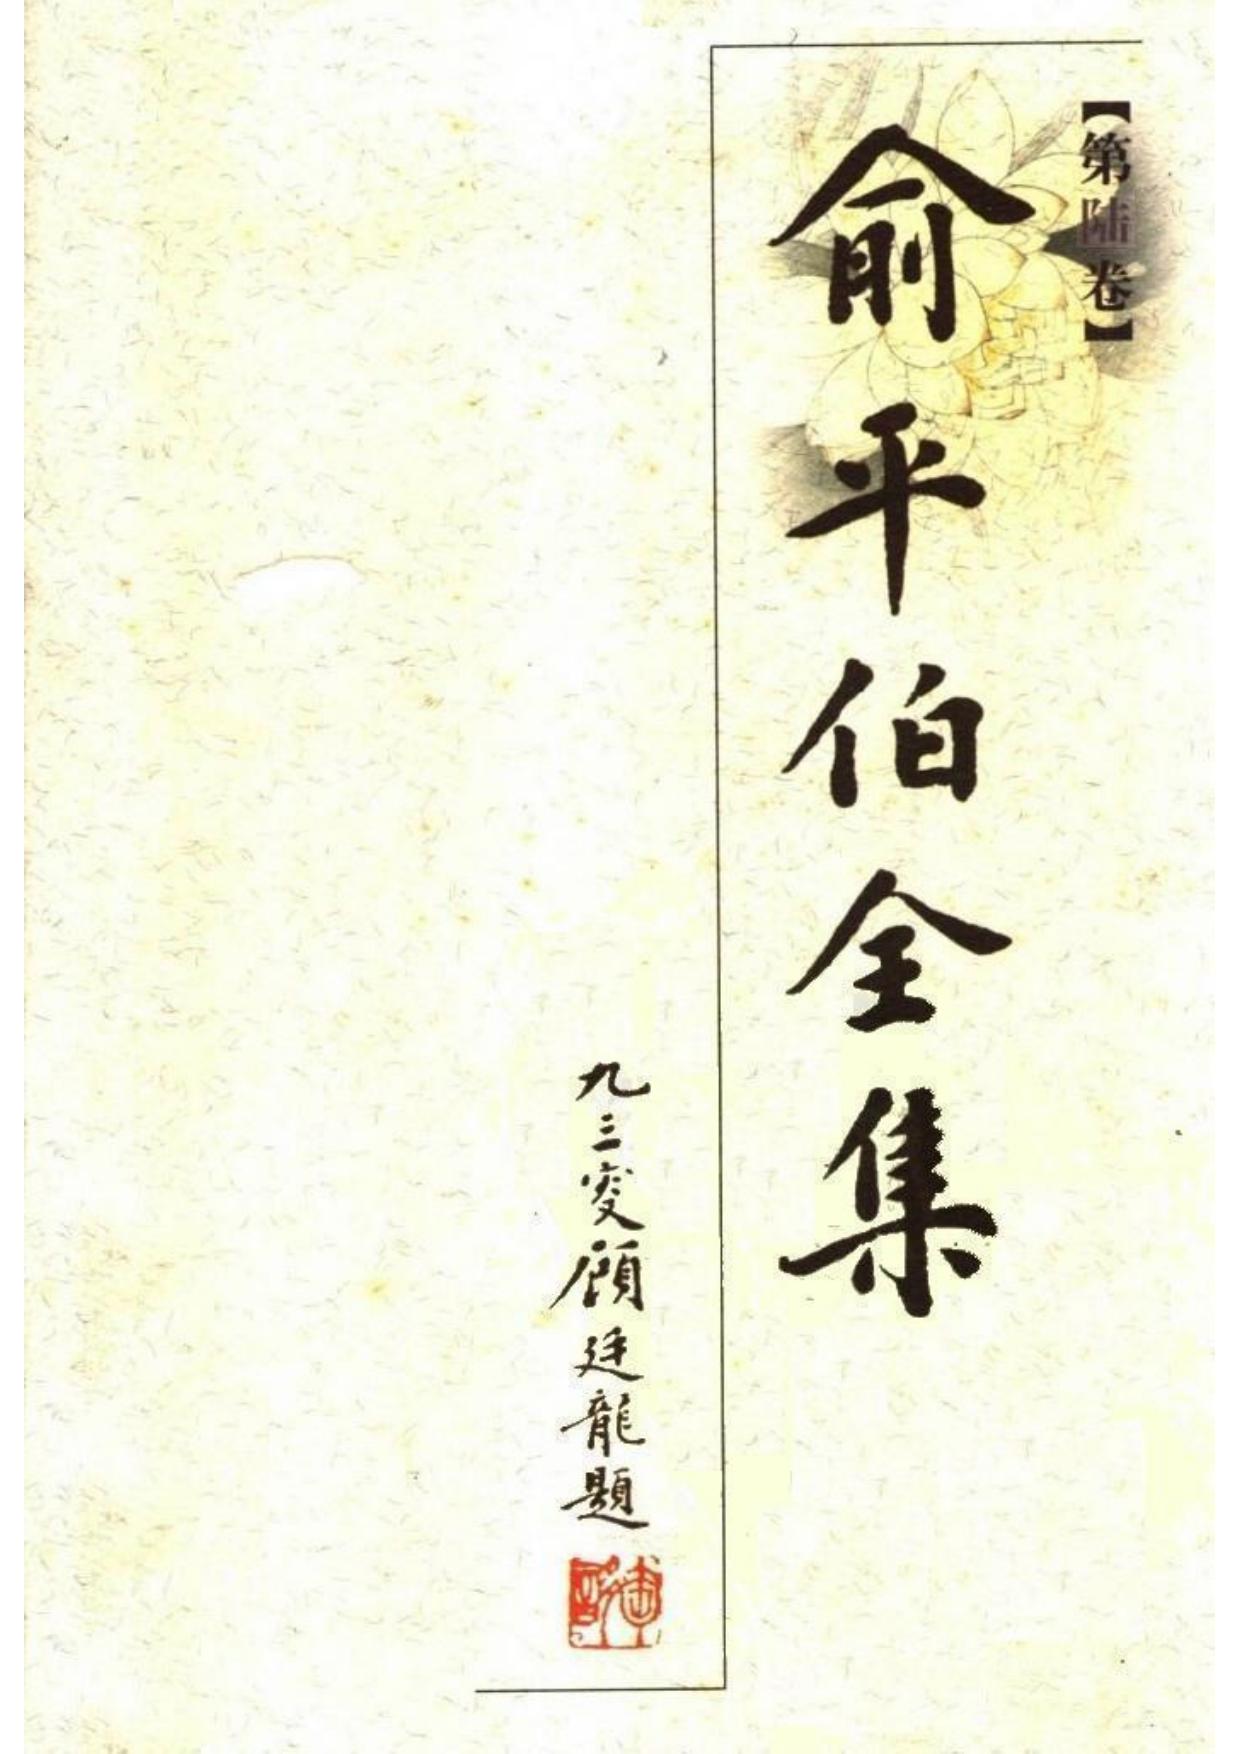 【第陆卷】
俞平伯全集
九三叟顧廷龍題